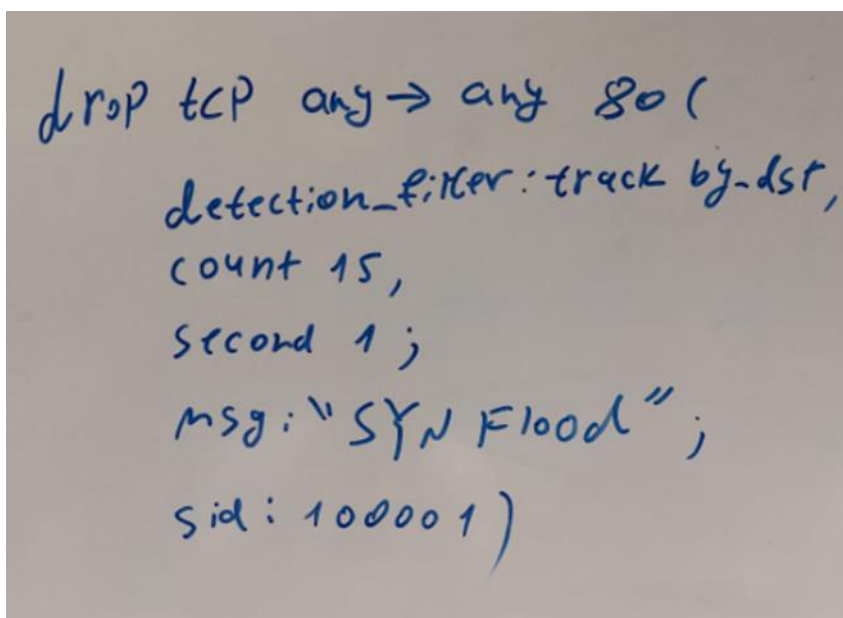 drop tcp any → any 80 (
detection_filter: track by_dst,
count 15,
second 1;
msg: "SYN Flood";
sid: 100001)